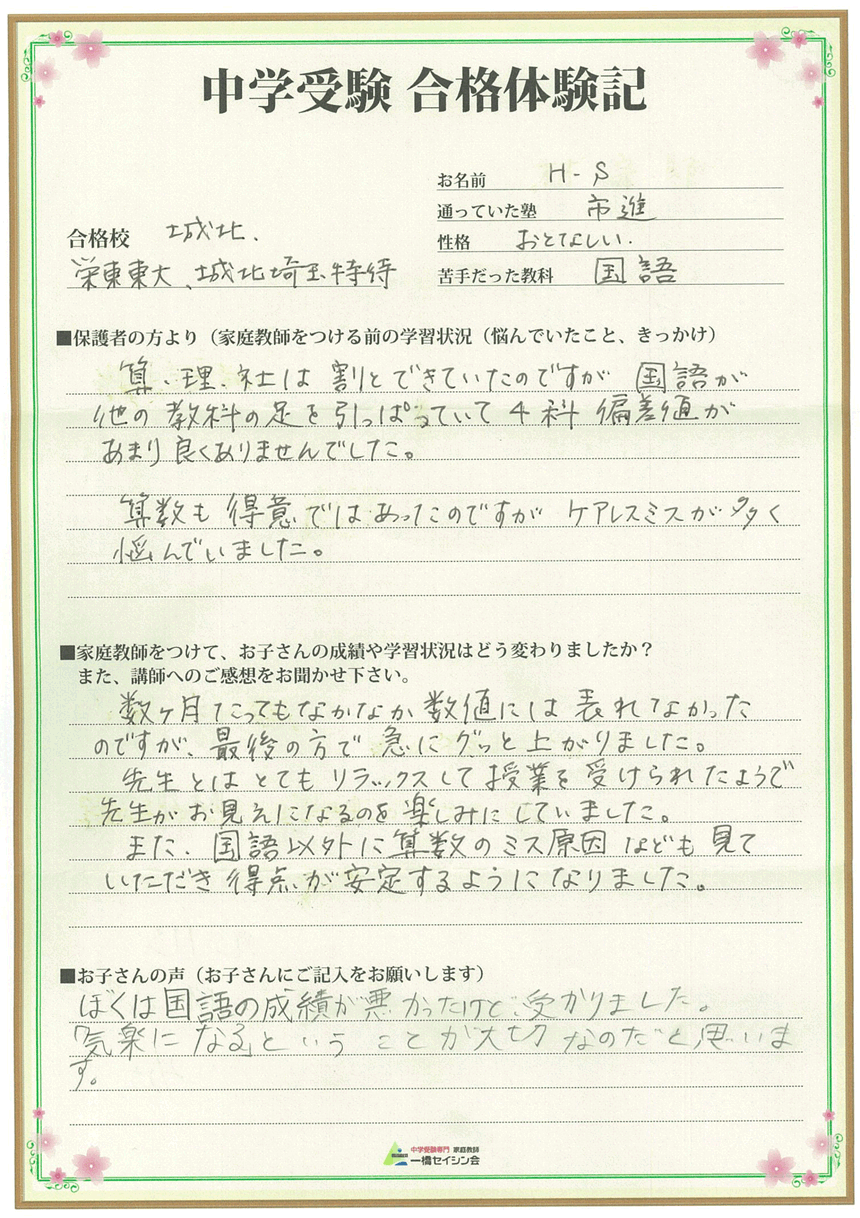 中学受験 合格体験記
お名前 H-S
通っていた塾 市進
合格校 城北、
性格 おとなしい.
栄東東大、城北埼玉特待
苦手だった教科 国語
■保護者の方より（家庭教師をつける前の学習状況（悩んでいたこと、きっかけ）
算・理・社は 割とできていたのですが 国語が
他の教科の足を引っぱっていて 4科 偏差値が
あまり良くありませんでした。
算数も 得意ではあったのですが ケアレスミスが多く
悩んでいました。
■家庭教師をつけて、お子さんの成績や学習状況はどう変わりましたか？
また、講師へのご感想をお聞かせ下さい。
数ヶ月たってもなかなか数値には表れてなかった
のですが、最後の方で 急にグッと上がりました。
先生とはとてもリラックスして授業を受けられたようで
先生がお見えになるのを楽しみにしていました。
また、国語以外に算数のミス原因なども見て
いただき得点が安定するようになりました。
■お子さんの声（お子さんにご記入をお願いします）
ぼくは国語の成績が悪かったけど、受かりました。
「気楽になる」ということが大切なのだと思いま
す。
中学受験専門 家庭教師
一橋セイシン会